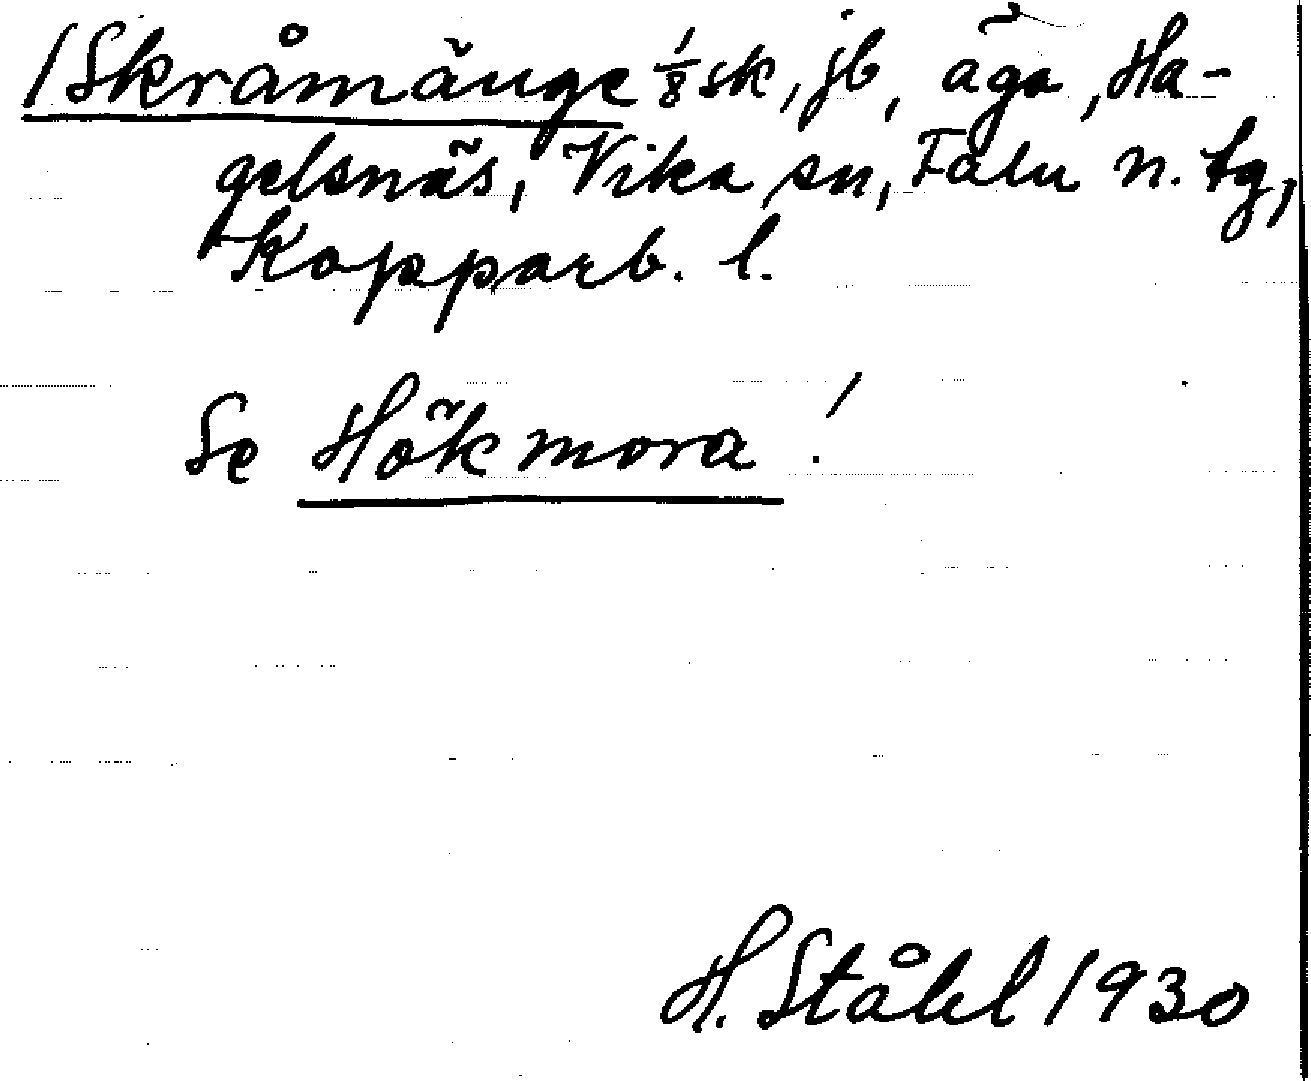 /Skråmänge 1/8 sk, jb, äga, Ha-
gelsnäs, Vika sn, Falu n. tg,
Kopparb. l.
Se Hökmora!
H. Ståhl 1930